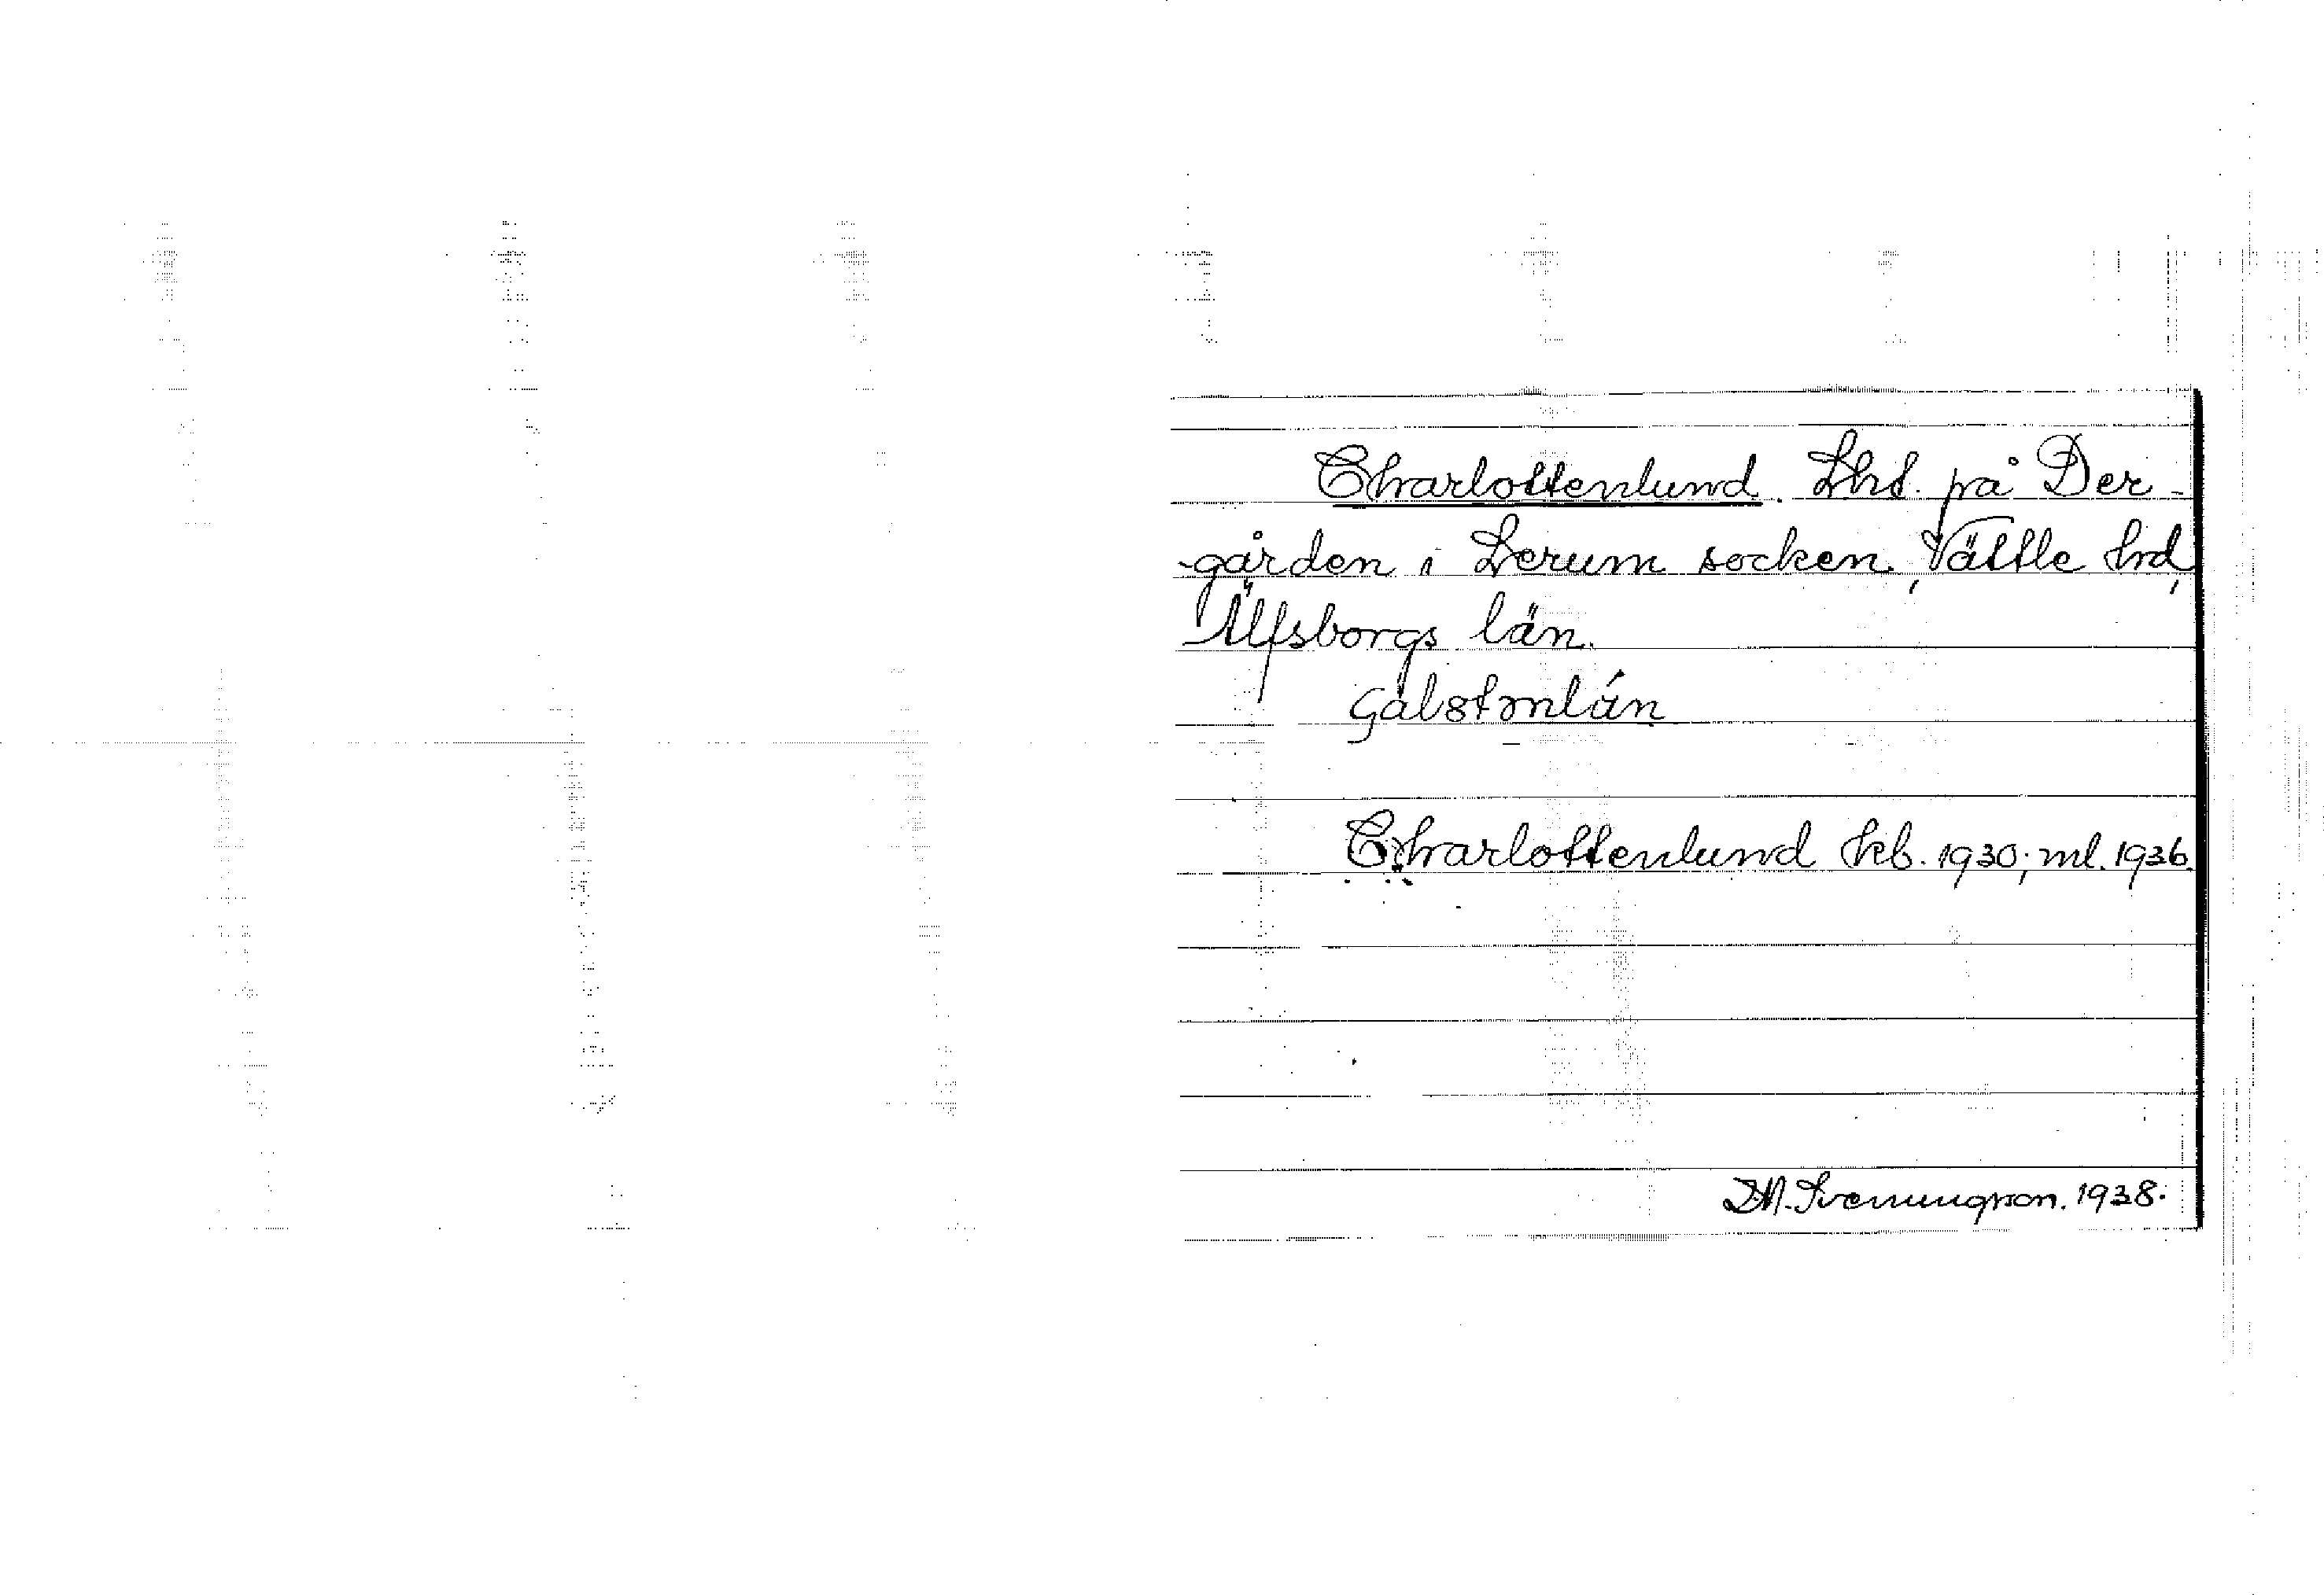 Charlottenlund. Lht. på Der-
gården i Lerum socken, Vättle hd,
Älfsborgs län.
Charlottenlund kb. 1930; ml. 1936.
D.M. Svenungson. 1938.